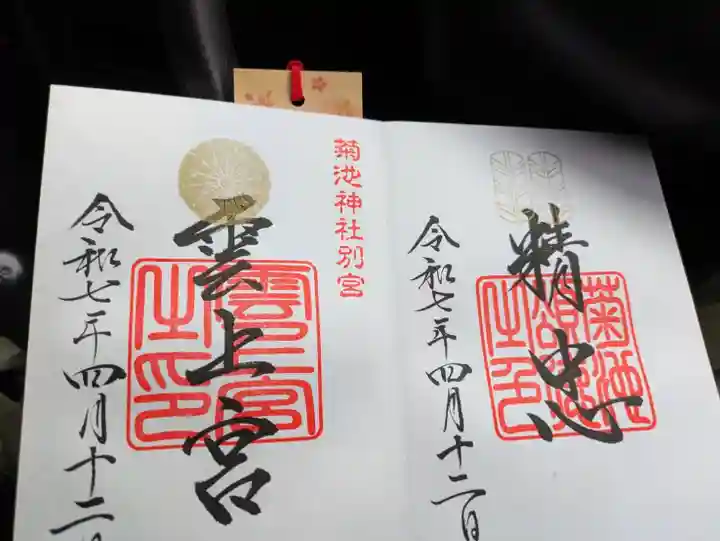 精忠
令和七年四月十二日
菊池神社別宮
雲上宮
雲上宮之印
令和七年四月十二日